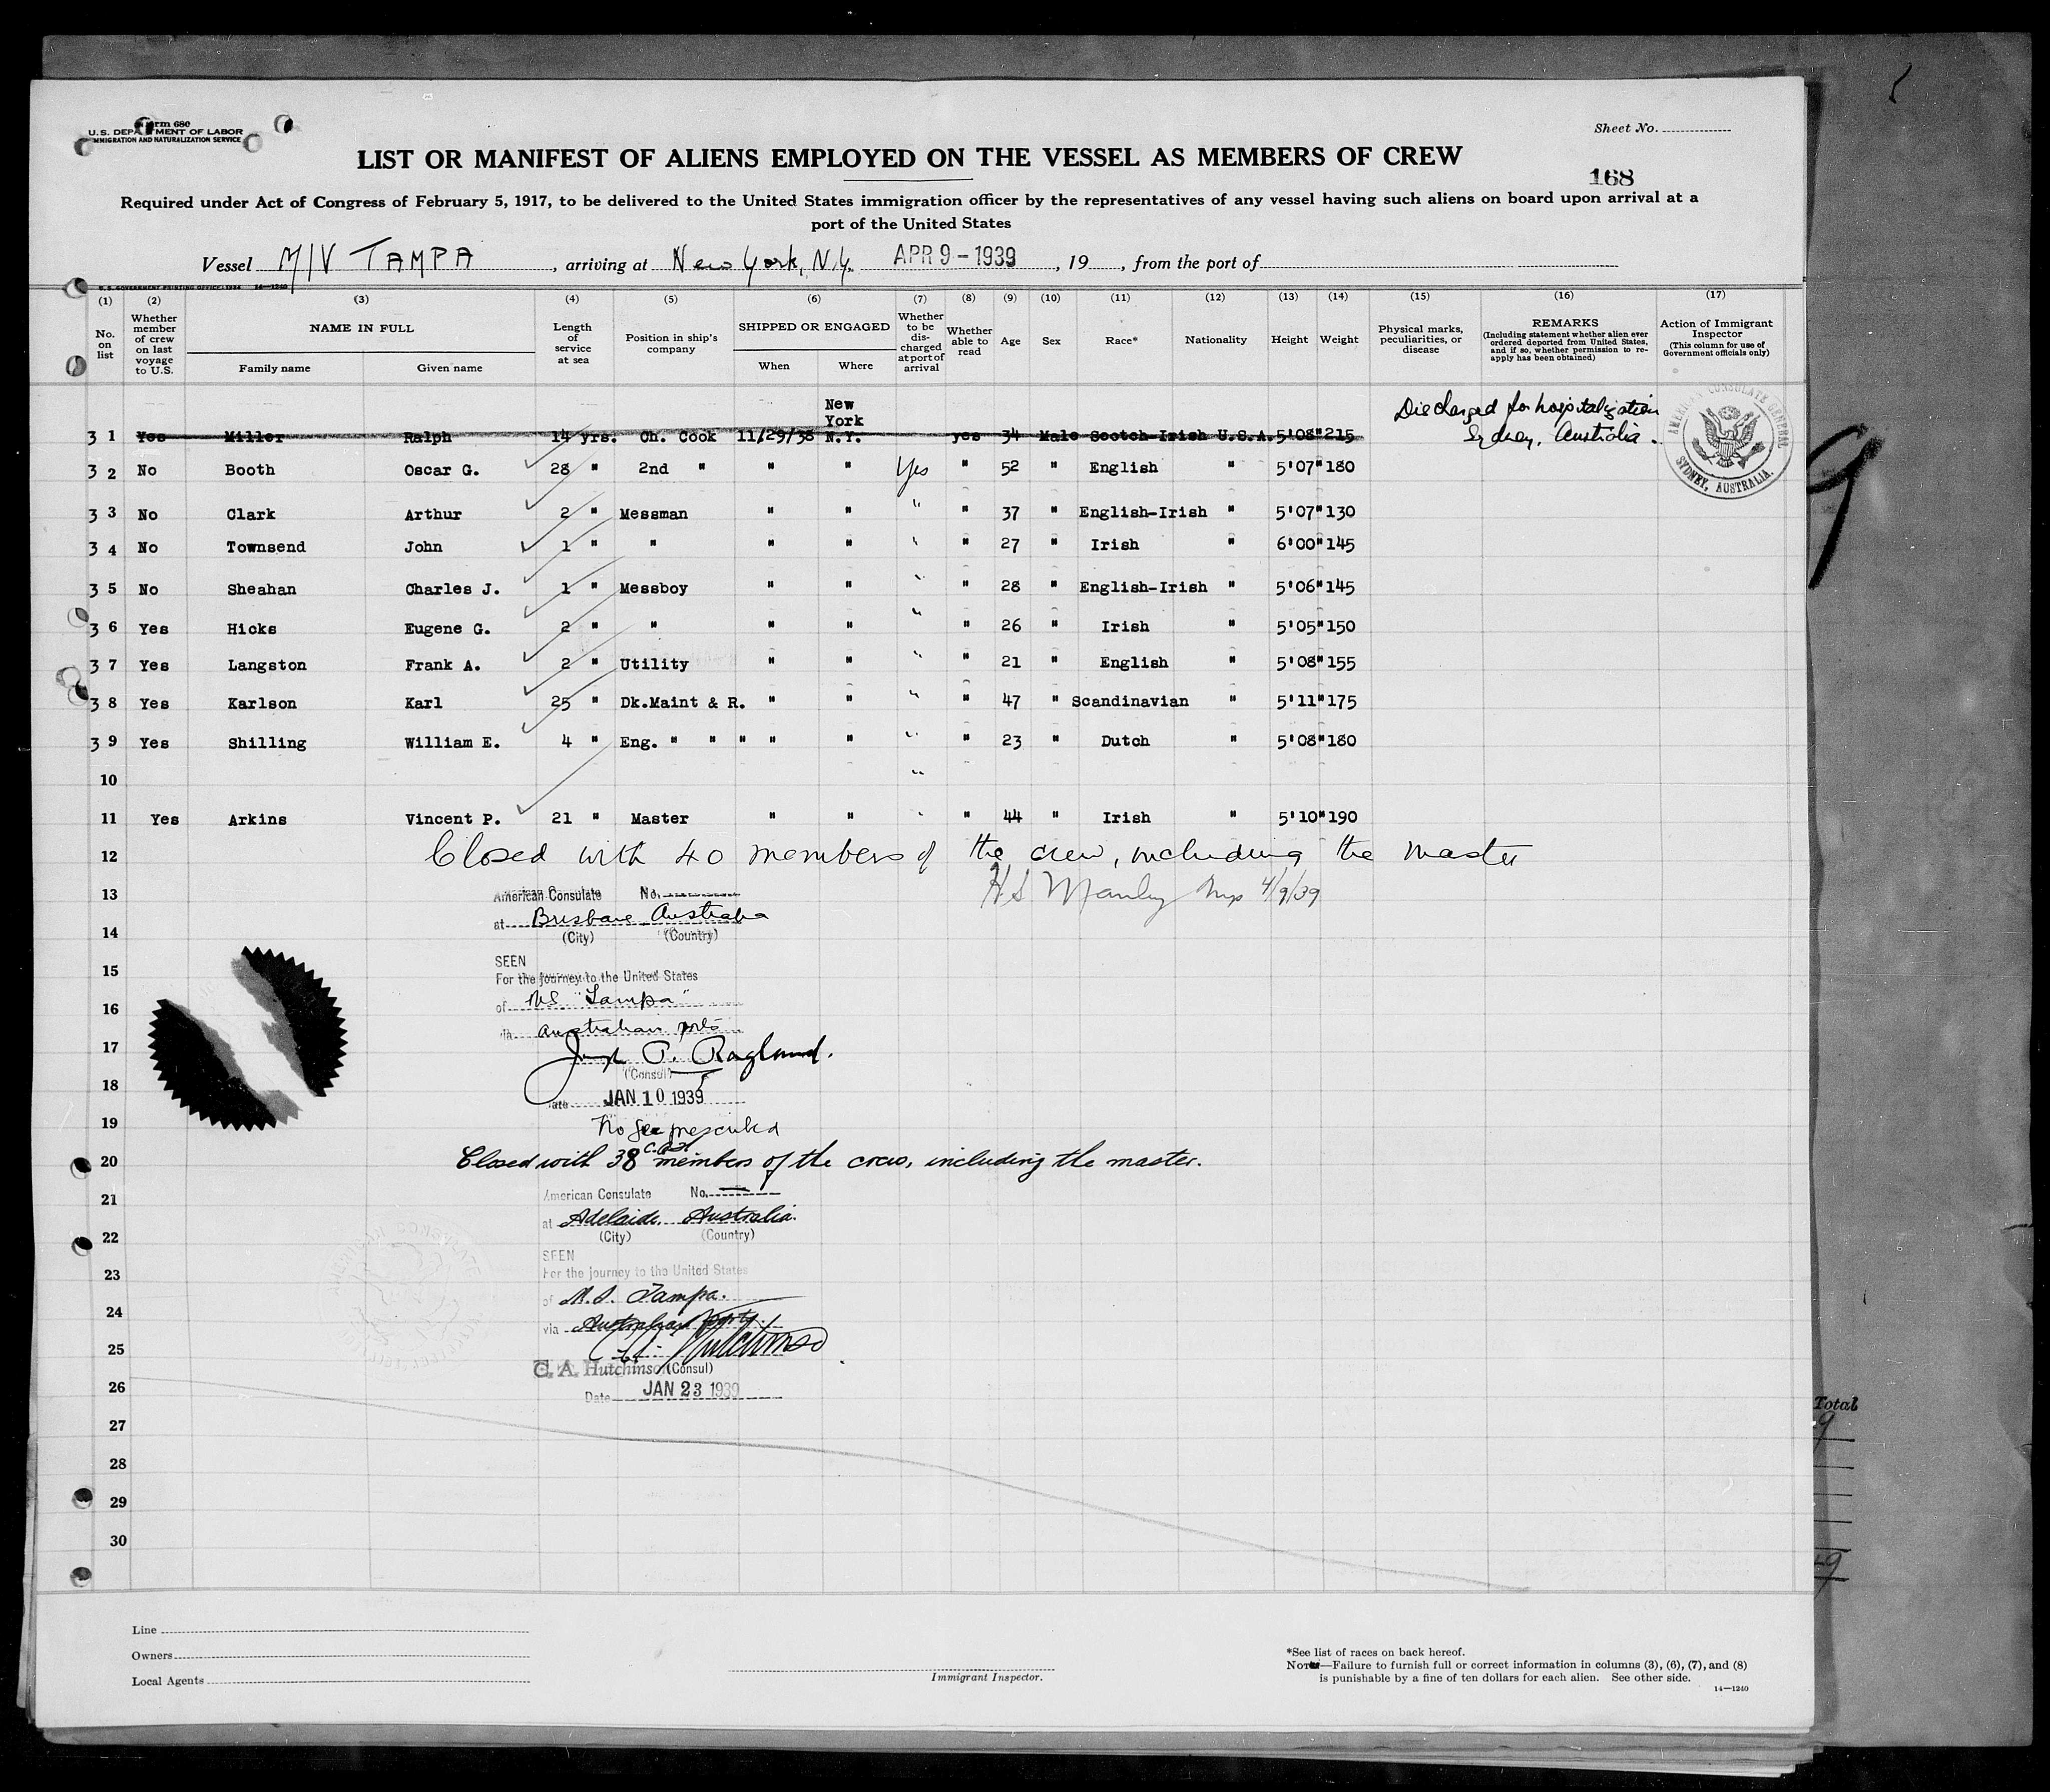 Form 680
U.S. DEPARTMENT OF LABOR
IMMIGRATION AND NATURALIZATION SERVICE
Sheet No.
LIST OR MANIFEST OF ALIENS EMPLOYED ON THE VESSEL AS MEMBERS OF CREW
168
Required under Act of Congress of February 5, 1917, to be delivered to the United States immigration officer by the representatives of any vessel having such aliens on board upon arrival at a
port of the United States
Vessel M/V TAMPA, arriving at New York, N.Y. APR 9 - 1939, 19, from the port of
U. S. GOVERNMENT PRINTING OFFICE: 1934 14—1240
(1) (2) (3) (4) (5) (6) (7) (8) (9) (10) (11) (12) (13) (14) (15) (16) (17)
No. on list
Whether member of crew on last voyage to U.S.
NAME IN FULL
Family name Given name
Length of service at sea
Position in ship's company
SHIPPED OR ENGAGED
When Where
Whether to be discharged at port of arrival
Whether able to read
Age
Sex
Race*
Nationality
Height
Weight
Physical marks, peculiarities, or disease
REMARKS
(Including statement whether alien ever ordered deported from United States, and if so, whether permission to reapply has been obtained)
Action of Immigrant Inspector
(This column for use of Government officials only)
New
York
3 1 Yes Miller Ralph 14 yrs. Ch. Cook 11/29/38 N.Y. yes 34 Male Scotch-Irish U.S.A. 5'08" 215
Discharged for hospitalization
Sydney, Australia.
AMERICAN CONSULATE GENERAL
SYDNEY, AUSTRALIA.
3 2 No Booth Oscar G. 28 " 2nd " " " Yes " 52 " English " 5'07" 180
3 3 No Clark Arthur 2 " Messman " " " " 37 " English-Irish " 5'07" 130
3 4 No Townsend John 1 " " " " " " 27 " Irish " 6'00" 145
3 5 No Sheahan Charles J. 1 " Messboy " " " " 28 " English-Irish " 5'06" 145
3 6 Yes Hicks Eugene G. 2 " " " " " " 26 " Irish " 5'05" 150
3 7 Yes Langston Frank A. 2 " Utility " " " " 21 " English " 5'08" 155
3 8 Yes Karlson Karl 25 " Dk.Maint & R. " " " " 47 " Scandinavian " 5'11" 175
3 9 Yes Shilling William E. 4 " Eng. " " " " " " " 23 " Dutch " 5'08" 180
10 "
11 Yes Arkins Vincent P. 21 " Master " " " " 44 " Irish " 5'10" 190
12 Closed with 40 members of the crew, including the master
13 American Consulate No.
H S Manley Insp 4/9/39
at Brisbane, Australia
14 (City) (Country)
15 SEEN
For the journey to the United States
16 of MS "Tampa"
via Australian ports
17 Joseph P. Ragland.
(Consul)
18 Date JAN 10 1939
19 No fee prescribed
20 Closed with 38 members of the crew, including the master.
21 American Consulate No. —
at Adelaide, Australia.
22 (City) (Country)
SEEN
23 For the journey to the United States
of M.S. Tampa.
24 via Australian ports.
25 C.A. Hutchinson
C. A. Hutchinson (Consul)
26 Date JAN 23 1939
27
28
29
30
Total
9
9
Line
Owners
Local Agents
Immigrant Inspector.
*See list of races on back hereof.
NOTE—Failure to furnish full or correct information in columns (3), (6), (7), and (8)
is punishable by a fine of ten dollars for each alien. See other side.
14—1240